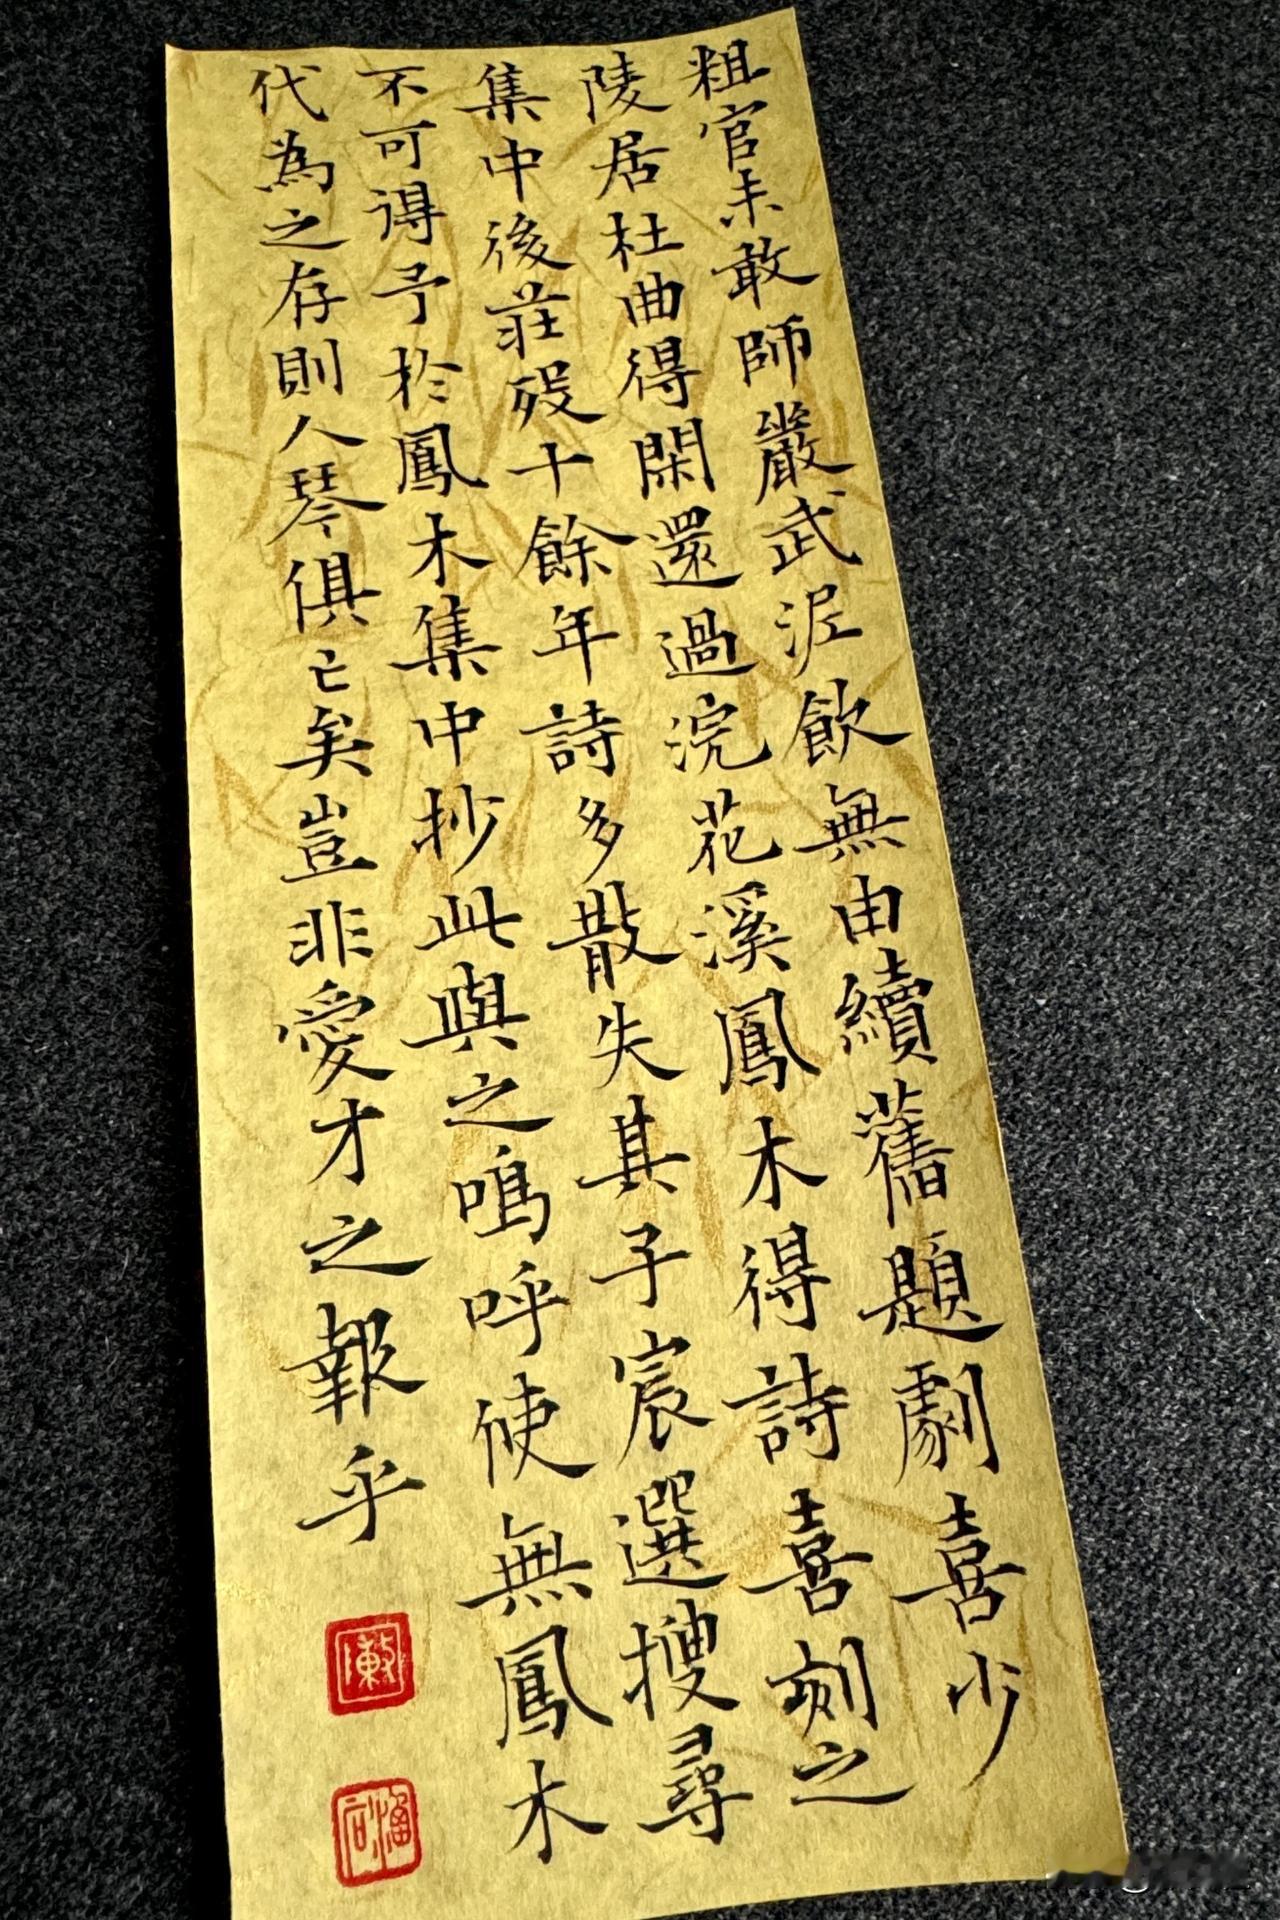 粗官未敢師嚴武泥飲無由續舊題劇喜少
陵居杜曲得閑還過浣花溪鳳木得詩喜刻之
集中後莊歿十餘年詩多散失其子宸選搜尋
不可得予於鳳木集中抄此與之嗚呼使無鳳木
代為之存則人琴俱亡矣豈非愛才之報乎